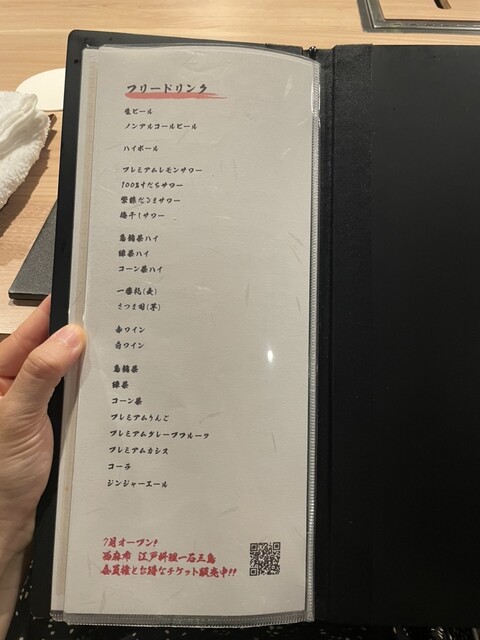 フリードリンク
生ビール
ノンアルコールビール
ハイボール
プレミアムレモンサワー
100%すだちサワー
サワー
梅干しサワー
烏龍茶ハイ
緑茶ハイ
コーン茶ハイ
一番札(麦)
さつま司(芋)
赤ワイン
白ワイン
烏龍茶
緑茶
コーン茶
プレミアムりんご
プレミアムグレープフルーツ
プレミアムカシス
コーラ
ジンジャーエール
7月オープン!
西麻布 江戸料理一石三鳥
会員権とお得なチケット販売中!!